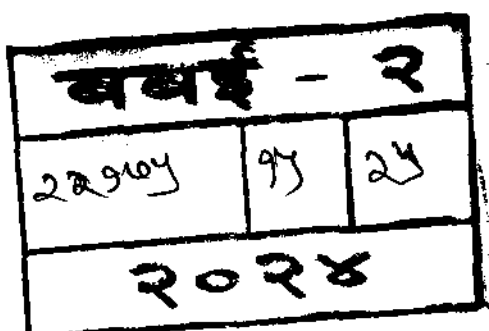 बबई - २
२२१७५ १५ २५
२०२४